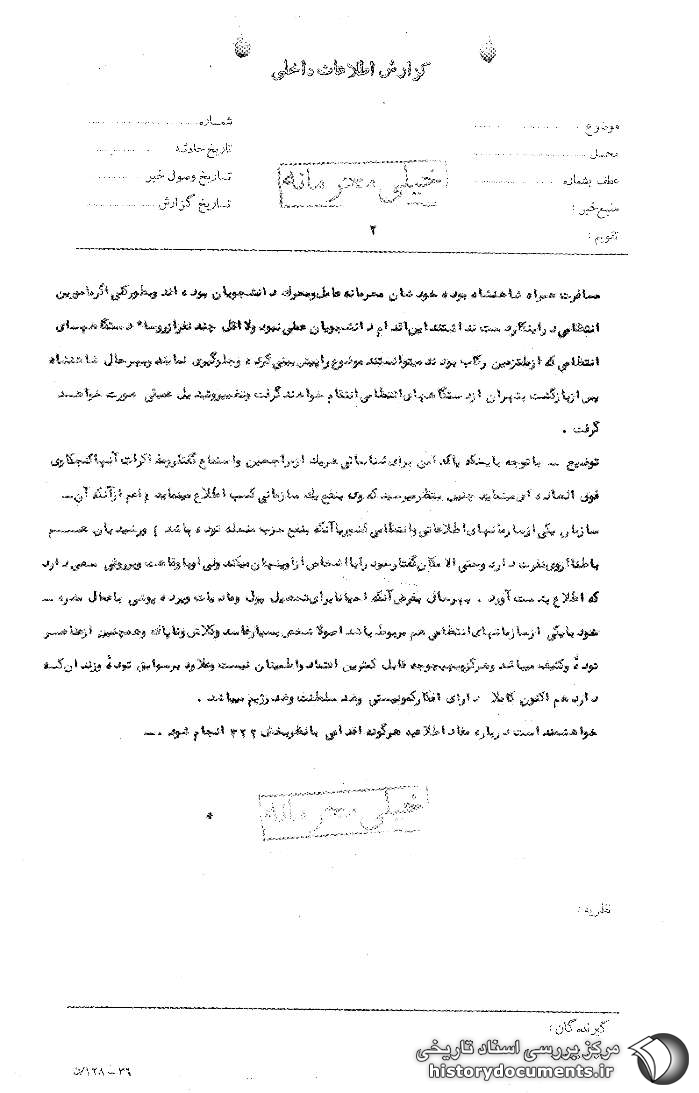 گزارش اطلاعات داخلی
موضوع
شماره
محل
تاریخ حادثه
عطف بشماره
تاریخ وصول خبر
منبع خبر :
تاریخ گزارش
تقویم :
خیلی محرمانه
۲
مسافرت همراه شاهنشاه بوده خودشان محرمانه عامل ومحرك دانشجویان بوده اند وبطورکلی اگرمامورین
انتظامی دراینکاردست نداشتند این اقدام دانشجویان عملی نبود ولااقل چند نفرازروساء دستگاههای
انتظامی که ازملتزمین رکاب بودند میتوانستند موضوع راپیش بینی کرده وجلوگیری نمایند وبهرحال شاهنشاه
پس ازبازگشت بتهران ازدستگاههای انتظامی انتقام خواهند گرفت وتغییروتبدیل عمیقی صورت خواهد
گرفت .
توضیح ـ باتوجه باینکه برای شناسائی هریك ازمراجعین واستماع گفتارومذاکرات آنها کنجکاوی
فوق العاده ای مینماید چنین بنظرمیرسد که وی بنفع یك سازمانی کسب اطلاع مینماید ( اعم ازآنکه آن ـ
سازمان یکی ازسازمانهای اطلاعاتی وانتظامی کشوریاآنکه بنفع حزب منحله توده باشد )
باطنا ازوی نفرت دارد وحتی الامکان گفتارخود رابااشخاص ازاوپنهان میکند ولی اوباوقاحت وپرروئی سعی دارد
که اطلاع بدست آورد . بهرحال بفرض آنکه احیانا برای تحصیل پول ومادیات وپرده پوشی باعمال مضره ـ
خود بایکی ازسازمانهای انتظامی هم مربوط باشد اصولا شخص بسیارفاسد وکلاش وناپاك وهمچنین ازعناصر
توده وکثیف میباشد وهرگزوبهیچوجه قابل کمترین اعتماد واطمینان نیست وعلاوه برسوابق توده وزندان که
دارد هم اکنون کاملا دارای افکارکمونیستی وضد سلطنت وضد رژیم میباشد .
خواهشمند است درباره مفاد اطلاعیه هرگونه اقدامی بانظربخش ۳۲۲ انجام شود . ـ
خیلی محرمانه
*
نظریه :
گیرندگان :
۳۶ – ۱۲۸/ت
مرکز بررسی اسناد تاریخی
historydocuments.ir